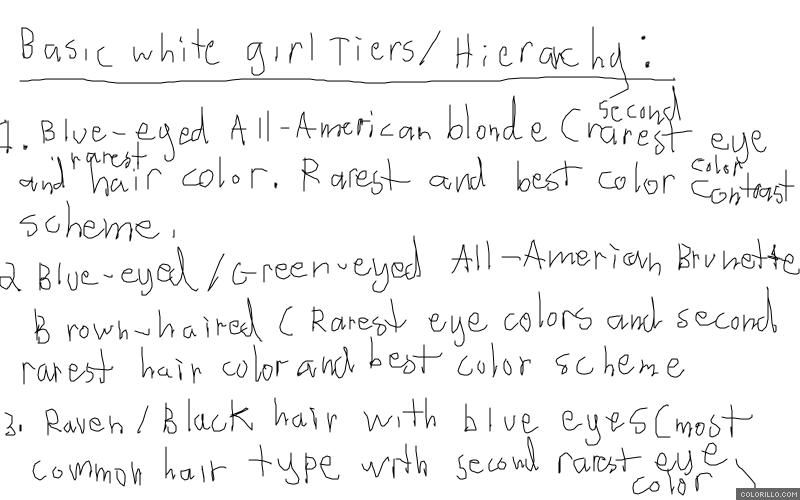 Basic white girl Tiers/Hierachy:
1. Blue-eyed All-American blonde (second rarest eye
and rarest hair color. Rarest and best color color contrast
scheme.
2 Blue-eyed/Green-eyed All-American Brunette
Brown-haired (Rarest eye colors and second
rarest hair color and best color scheme
3. Raven/Black hair with blue eyes(most
common hair type with second rarest eye
color)
COLORILLO.COM